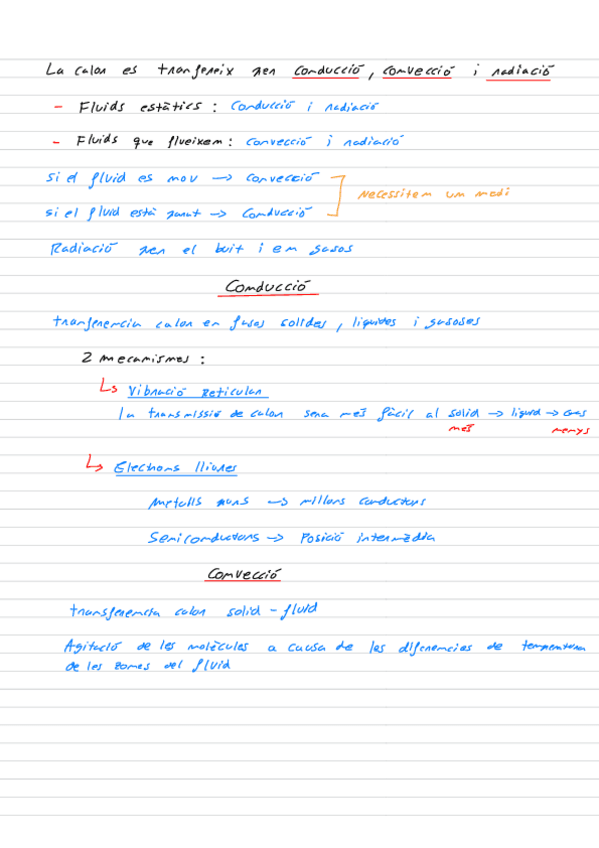 La calor es transfereix per conducció, convecció i radiació
- Fluids estàtics: Conducció i radiació
- Fluids que flueixem: convecció i radiació
si el fluid es mou → convecció
si el fluid està parat → conducció
Necessitem um medi
Radiació per el buit i em gasos
Conducció
transferencia calor en fases solides, liquides i gasoses
2 mecamismes:
↳ Vibració Reticular
la transmissió de calor sera més fàcil al solid → liquid → Gas
més menys
↳ Electrons lliures
Metalls purs → millors conductors
Semiconductors → Posició intermèdia
Convecció
transferencia calor solid - fluid
Agitació de les molècules a causa de les diferencies de temperatura
de les zones del fluid